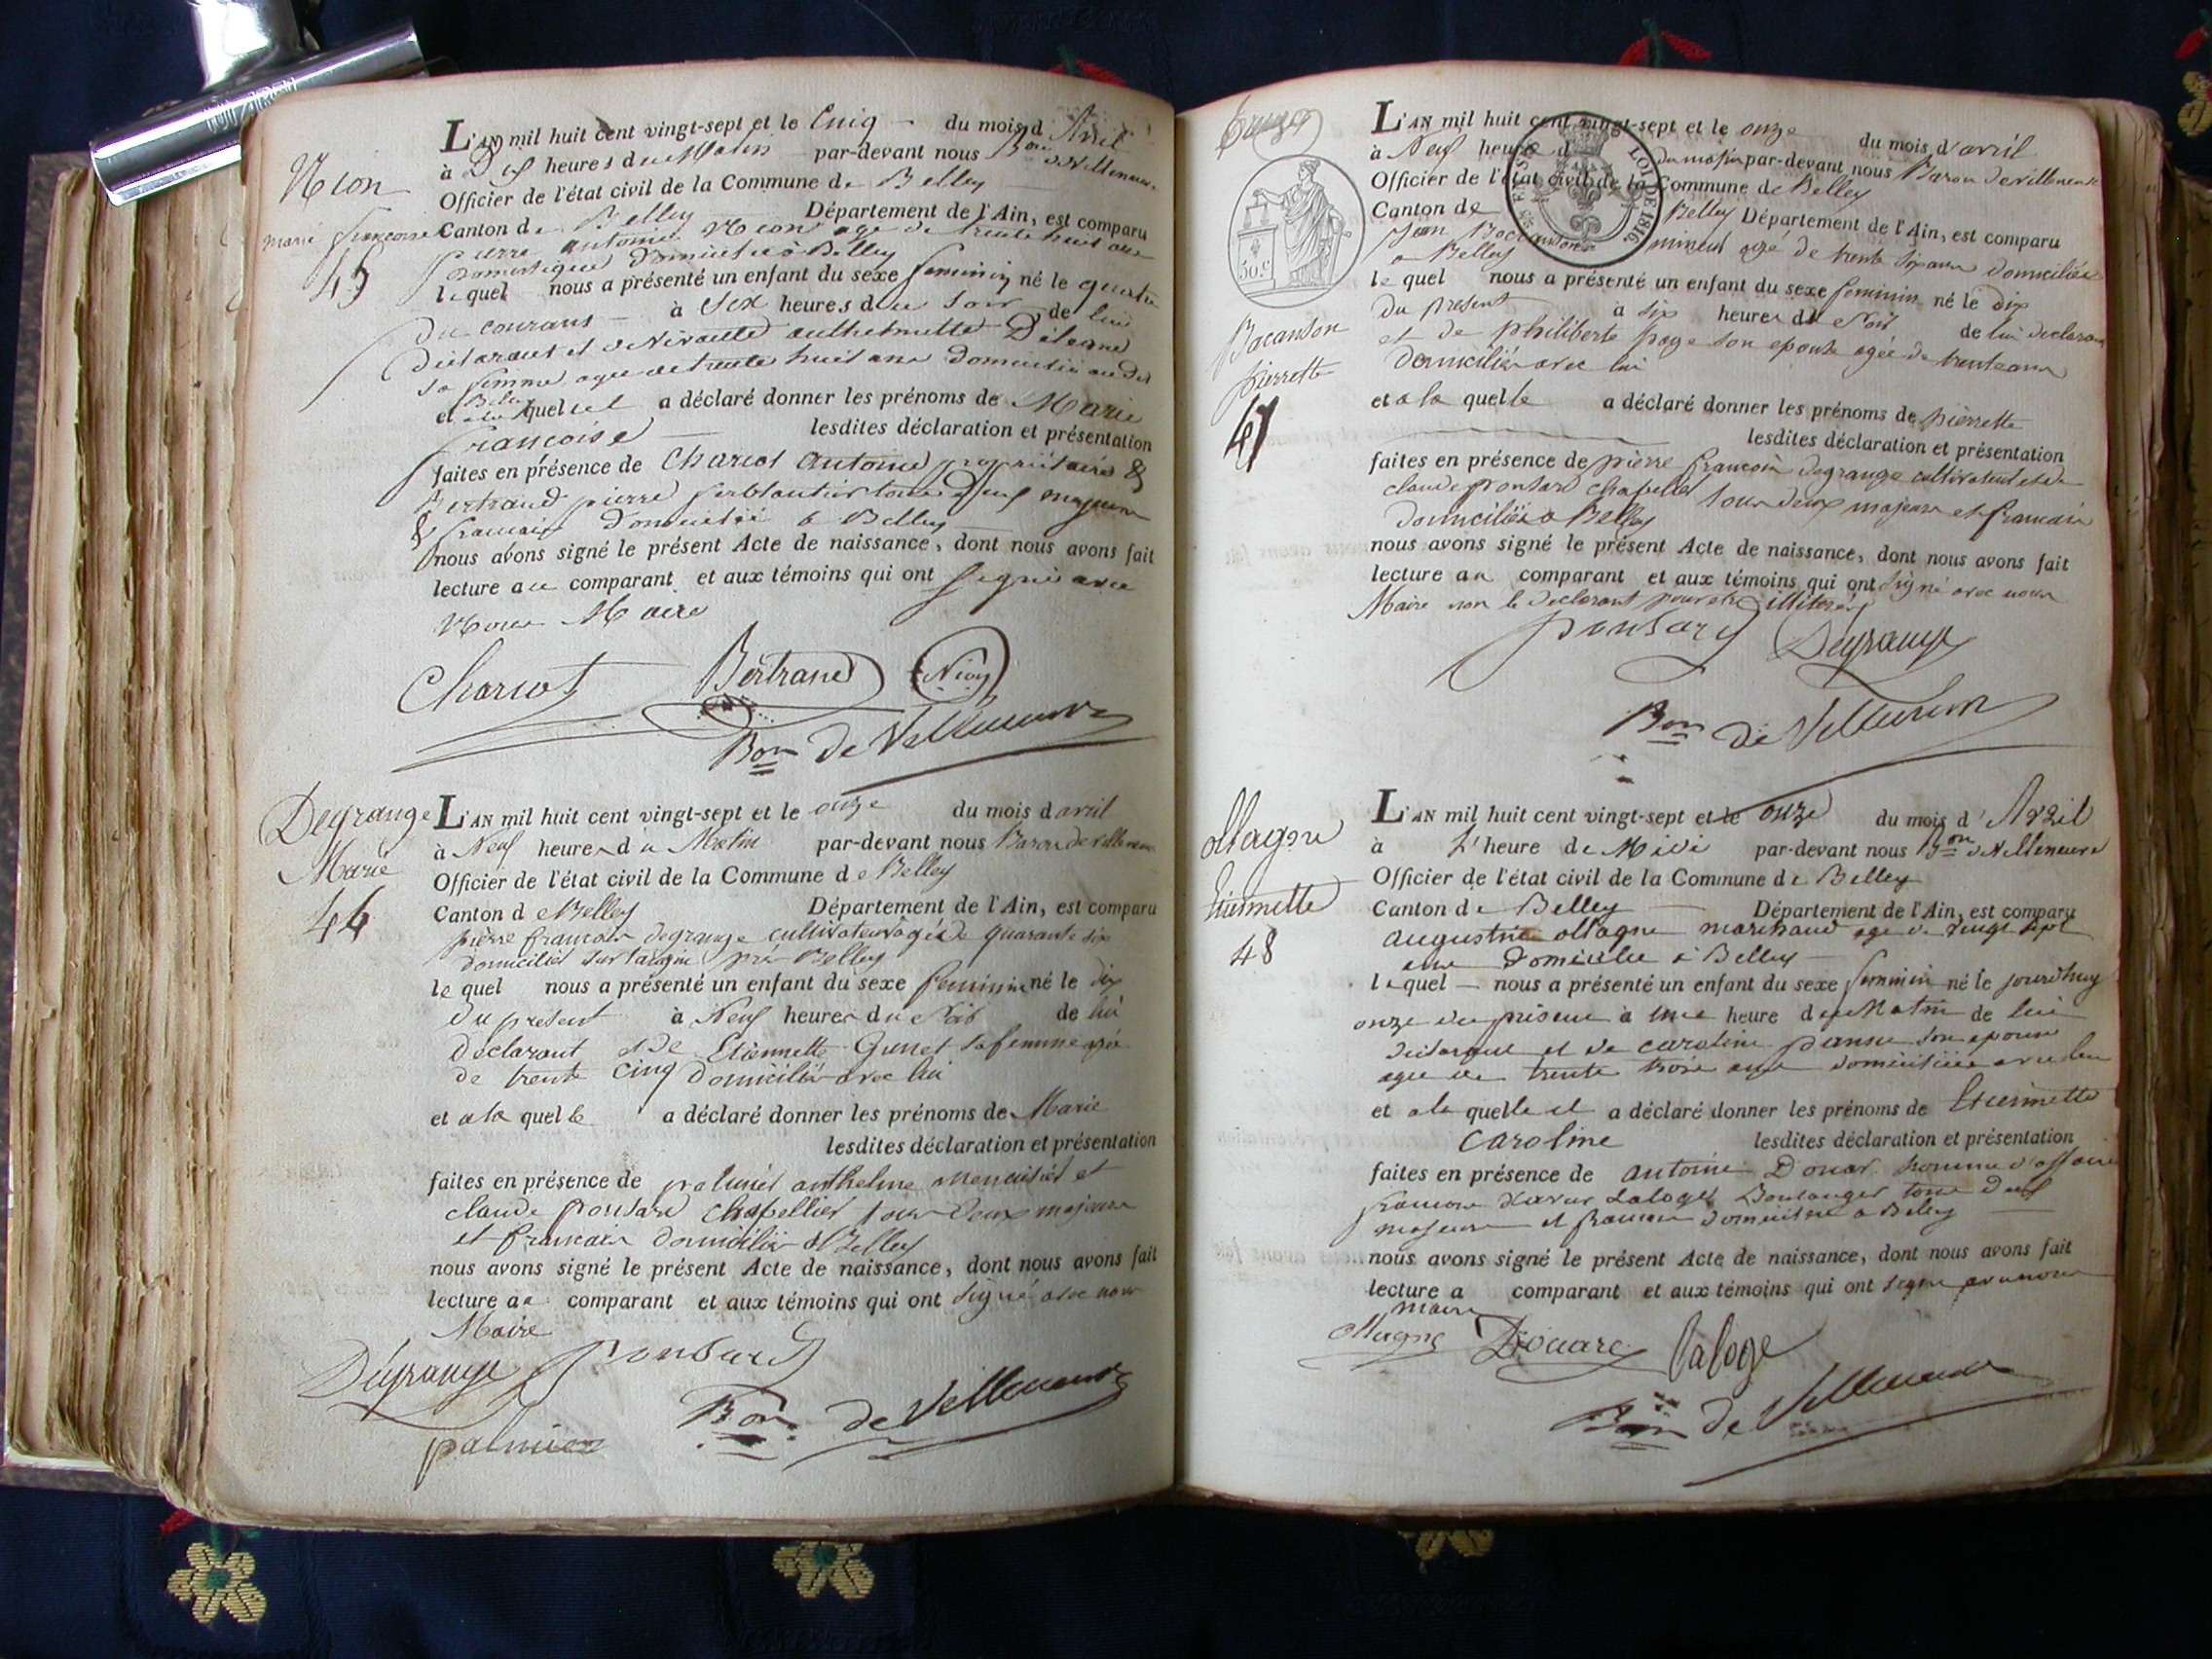 Nion
marie françoise
45
L'AN mil huit cent vingt-sept et le Cinq du mois d'Avril
à Dix heures du Matin par-devant nous Bon de Villeneuve
Officier de l'état civil de la Commune de Belley
Canton de Belley Département de l'Ain, est comparu
pierre antoine Nion age de trente huit ans
Domestique Domicilié à Belley
lequel nous a présenté un enfant du sexe feminin né le quatre
du courant à Six heures du soir de lui
Declarant et de
sa femme agee de trente huit ans Domicilié au dit
Belley
et a quel a déclaré donner les prénoms de Marie
francoise lesdites déclaration et présentation
faites en présence de Charcot Antoine propriétaire &
Bertrand pierre ferblantier tous deux majeurs
& francais Domicilié à Belley
nous avons signé le présent Acte de naissance, dont nous avons fait
lecture au comparant et aux témoins qui ont signé avec
Nous Maire
Charcot Bertrand Nion
Bon de Villeneuve
Degrange
Marie
46
L'AN mil huit cent vingt-sept et le onze du mois d avril
à Neuf heures du Matin par-devant nous Baron de villeneuve
Officier de l'état civil de la Commune de Belley
Canton de Belley Département de l'Ain, est comparu
pierre francois degrange cultivateur agé de quarante six
domicilié près Belley
le quel nous a présenté un enfant du sexe feminin né le dix
du présent à Neuf heures du Soir de lui
déclarant et de Etiennette Gunet sa femme agée
de trente cinq domicilié avec lui
et a la quelle a déclaré donner les prénoms de Marie
lesdites déclaration et présentation
faites en présence de palmier anthelme menuisier et
claude ponsard chapellier tous deux majeurs
et francais domicilié à Belley
nous avons signé le présent Acte de naissance, dont nous avons fait
lecture au comparant et aux témoins qui ont signé avec nous
Maire
Degrange ponsard
palmier Bon de Villeneuve
SEINE
LOI DE 1816
50.c
Bacanson
pierrette
47
L'AN mil huit cent vingt-sept et le onze du mois d'avril
à Neuf heures du matin par-devant nous Baron de villeneuve
Officier de l'état civil de la Commune de Belley
Canton de Belley Département de l'Ain, est comparu
Jean Bacanson mineur agé de trente six ans domicilié
à Belley
le quel nous a présenté un enfant du sexe feminin né le dix
du présent à six heures du Soir de lui déclarant
et de philiberte page son epouse agée de trente ans
domiciliée avec lui
et a la quelle a déclaré donner les prénoms de pierrette
lesdites déclaration et présentation
faites en présence de pierre francois degrange cultivateur et de
claude ponsard chapelier tous deux majeurs et francais
domicilié à Belley
nous avons signé le présent Acte de naissance, dont nous avons fait
lecture au comparant et aux témoins qui ont signé avec nous
Maire non le declarant pour etre illitéré
ponsard Degrange
Bon de Villeneuve
ollagne
Etiennette
48
L'AN mil huit cent vingt-sept et le onze du mois d'Avril
à L'heure de Midi par-devant nous Bon de Villeneuve
Officier de l'état civil de la Commune de Belley
Canton de Belley Département de l'Ain, est comparu
augustin ollagne marchand age de vingt sept
ans Domicilié à Belley
lequel nous a présenté un enfant du sexe feminin né le jourdhuy
onze du présent à une heure du Matin de lui
declarant et de caroline panne son epouse
agee de trente trois ans domiciliée avec lui
et a la quelle il a déclaré donner les prénoms de Etiennette
Caroline lesdites déclaration et présentation
faites en présence de antoine Douar homme d'affaire
francois Xavier Laloge Boulanger tous deux
majeurs et francais domicilié à Belley
nous avons signé le présent Acte de naissance, dont nous avons fait
lecture a comparant et aux témoins qui ont signé avec nous
maire
ollagne Douare Laloge
Bon de Villeneuve